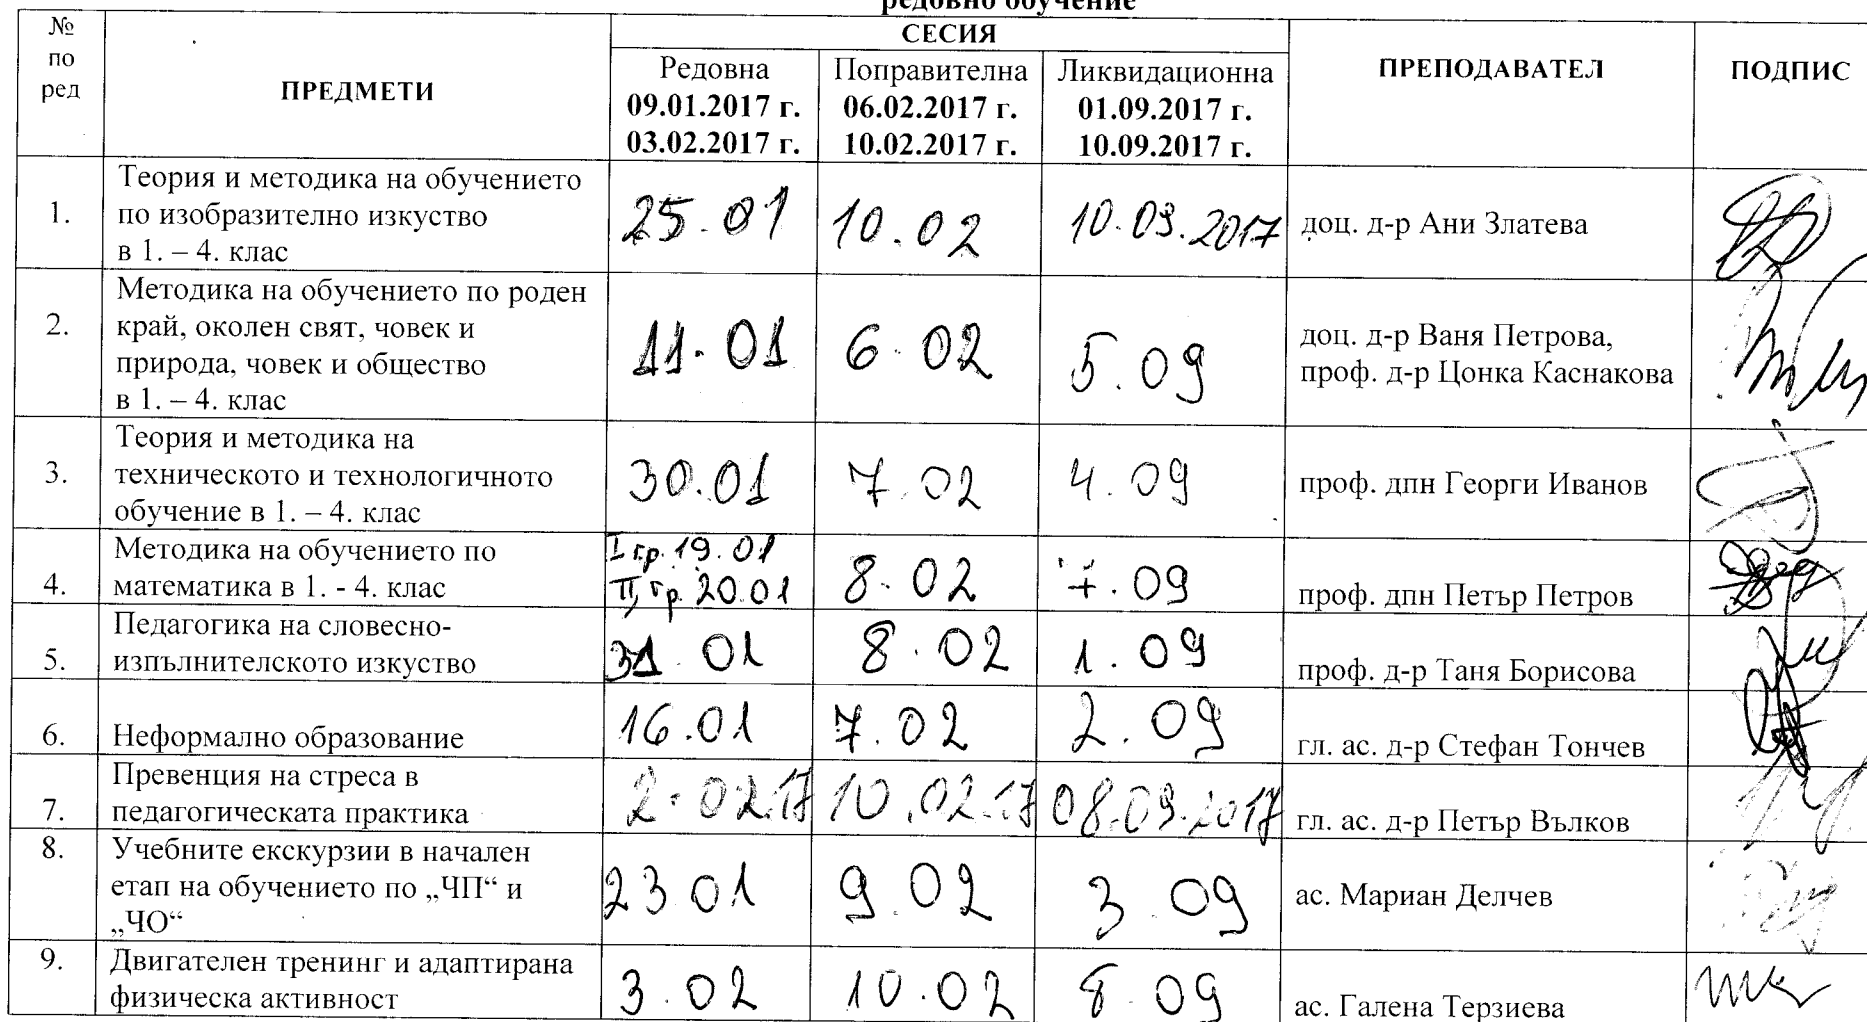 редовно обучение
№ по ред
ПРЕДМЕТИ
СЕСИЯ
Редовна
09.01.2017 г.
03.02.2017 г.
Поправителна
06.02.2017 г.
10.02.2017 г.
Ликвидационна
01.09.2017 г.
10.09.2017 г.
ПРЕПОДАВАТЕЛ
ПОДПИС
1.
Теория и методика на обучението
по изобразително изкуство
в 1. – 4. клас
25.01
10.02
10.09.2017
доц. д-р Ани Златева
2.
Методика на обучението по роден
край, околен свят, човек и
природа, човек и общество
в 1. – 4. клас
11.01
6.02
5.09
доц. д-р Ваня Петрова,
проф. д-р Цонка Каснакова
3.
Теория и методика на
техническото и технологичното
обучение в 1. – 4. клас
30.01
7.02
4.09
проф. дпн Георги Иванов
4.
Методика на обучението по
математика в 1. - 4. клас
I гр. 19.01
II гр. 20.01
8.02
7.09
проф. дпн Петър Петров
5.
Педагогика на словесно-
изпълнителското изкуство
31.01
8.02
1.09
проф. д-р Таня Борисова
6.
Неформално образование
16.01
7.02
2.09
гл. ас. д-р Стефан Тончев
7.
Превенция на стреса в
педагогическата практика
2.02.17
10.02.17
08.09.2017
гл. ас. д-р Петър Вълков
8.
Учебните екскурзии в начален
етап на обучението по „ЧП“ и
„ЧО“
23.01
9.02
3.09
ас. Мариан Делчев
9.
Двигателен тренинг и адаптирана
физическа активност
3.02
10.02
8.09
ас. Галена Терзиева